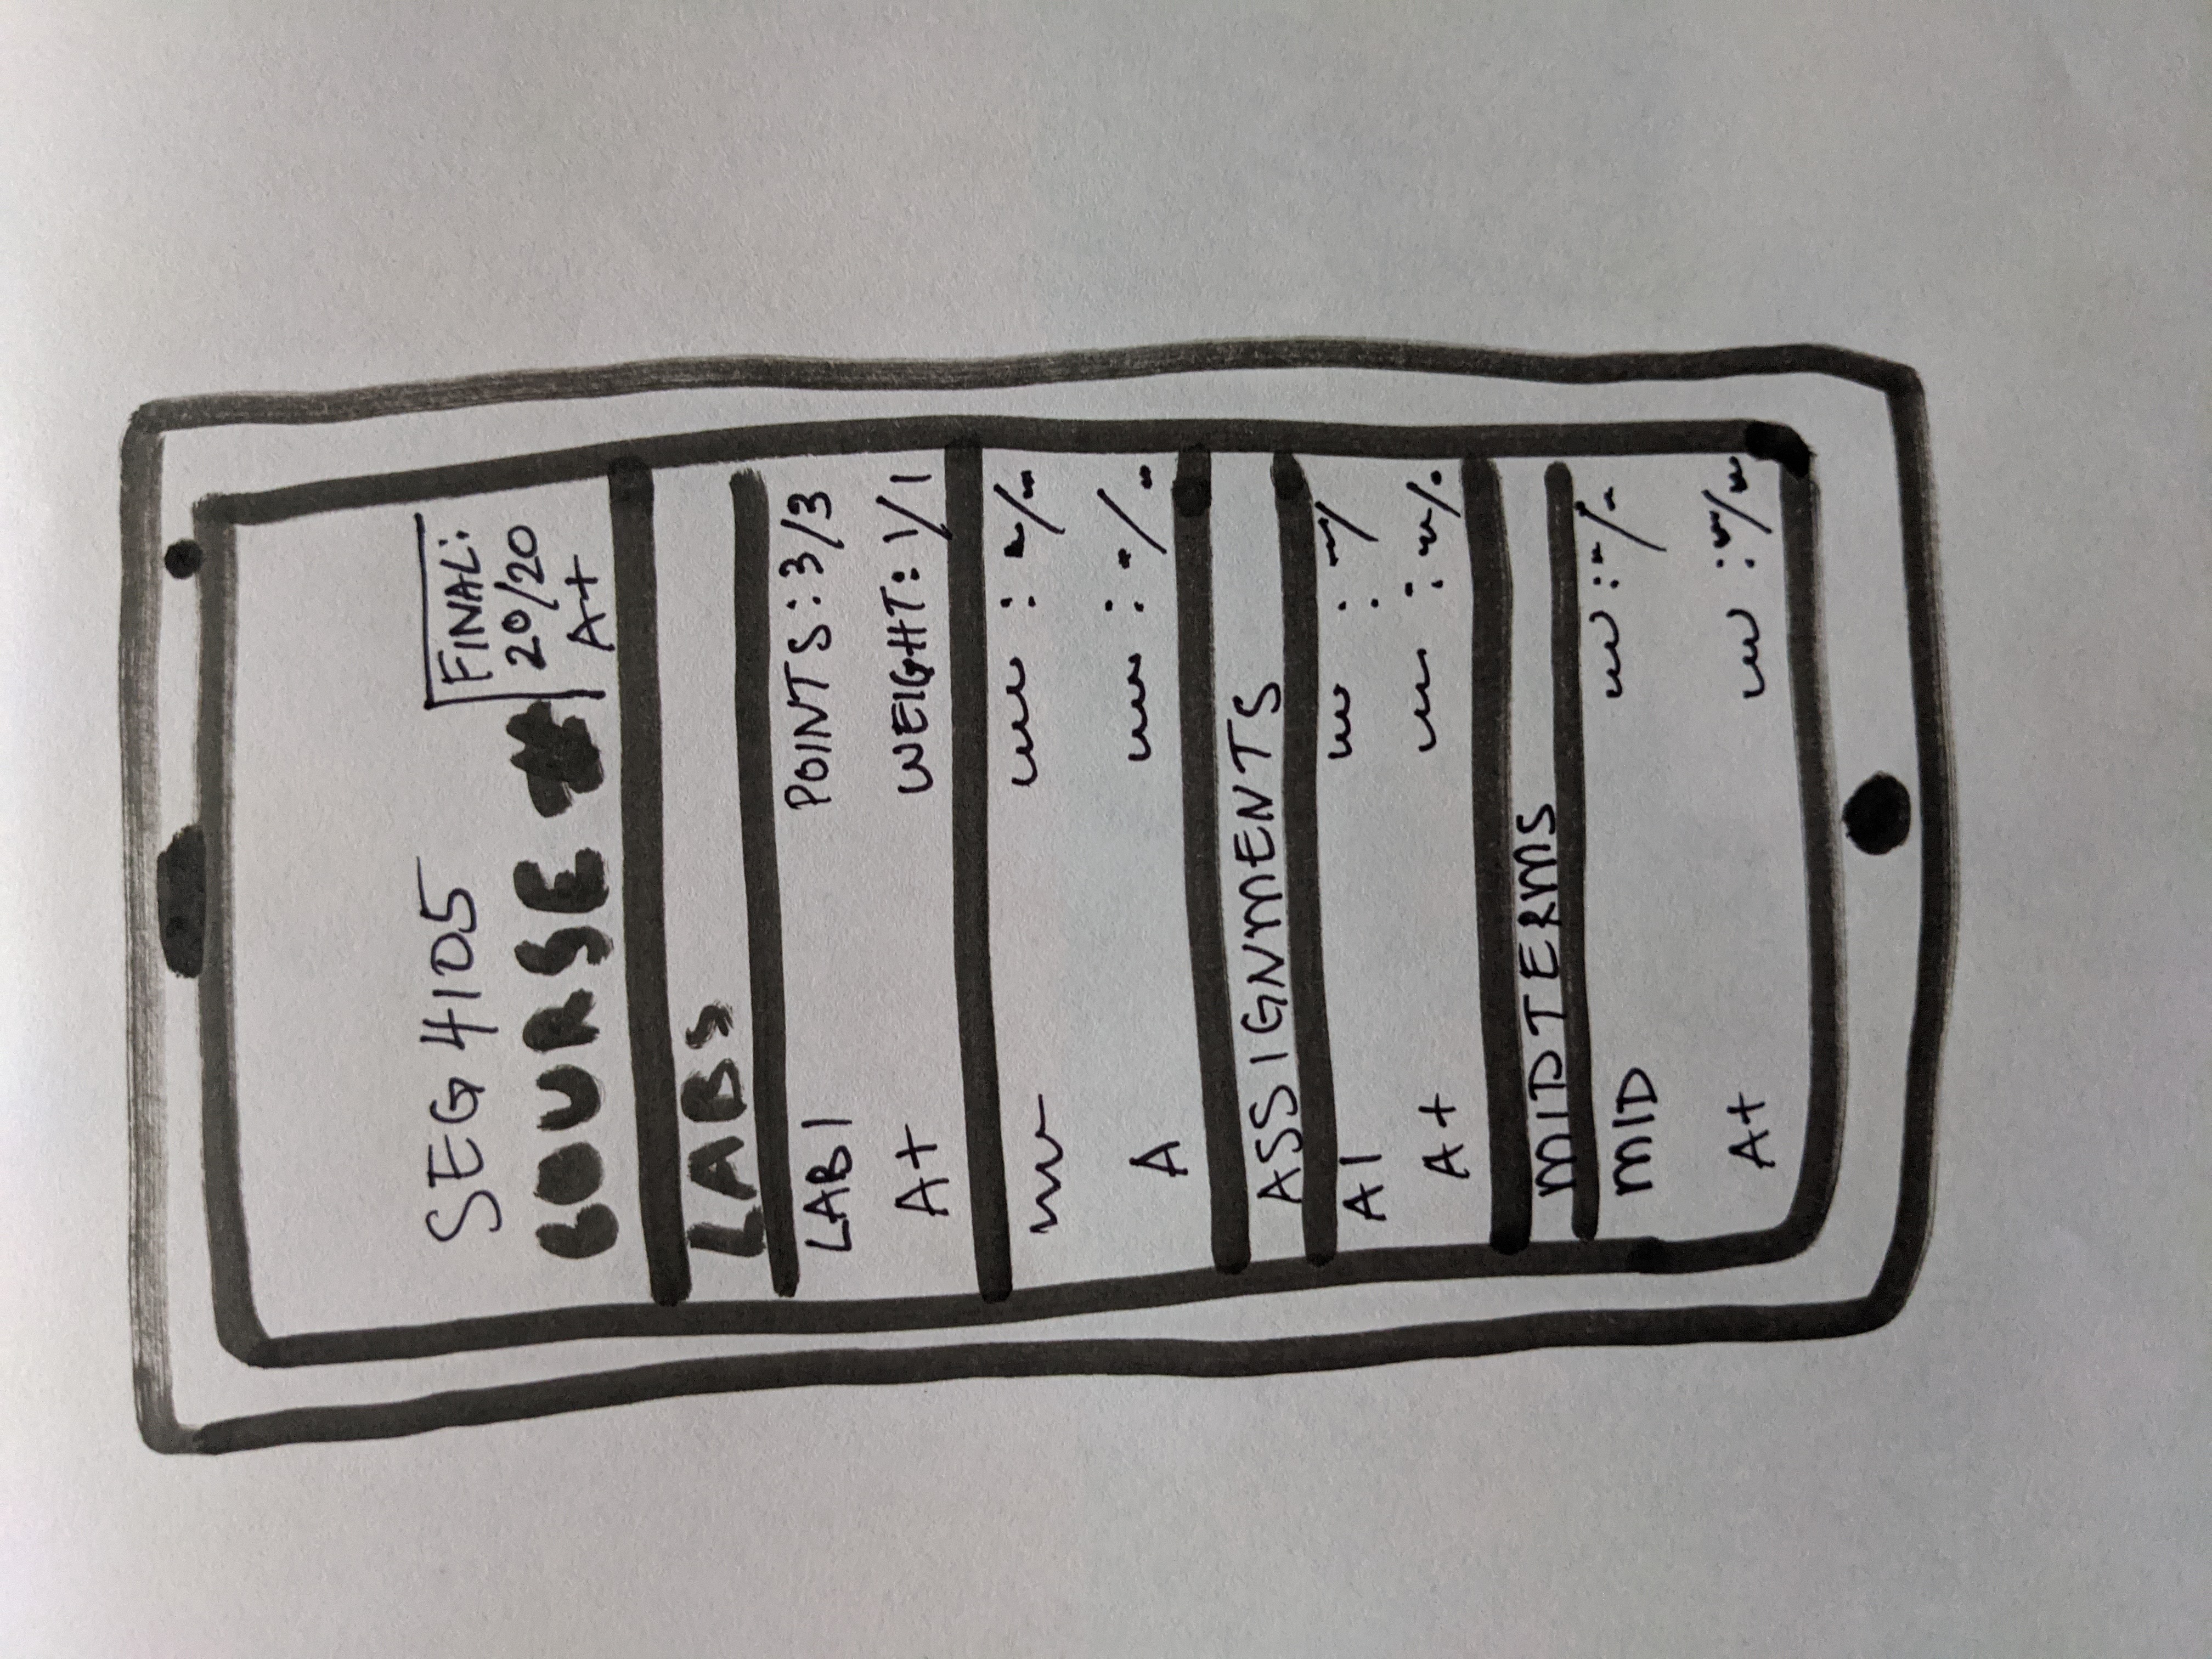 SEG 4105
COURSE #
FINAL:
20/20
A+
LABS
LAB 1
POINTS: 3/3
A+
WEIGHT: 1/1
A
ASSIGNMENTS
A1
A+
MIDTERMS
MID
A+